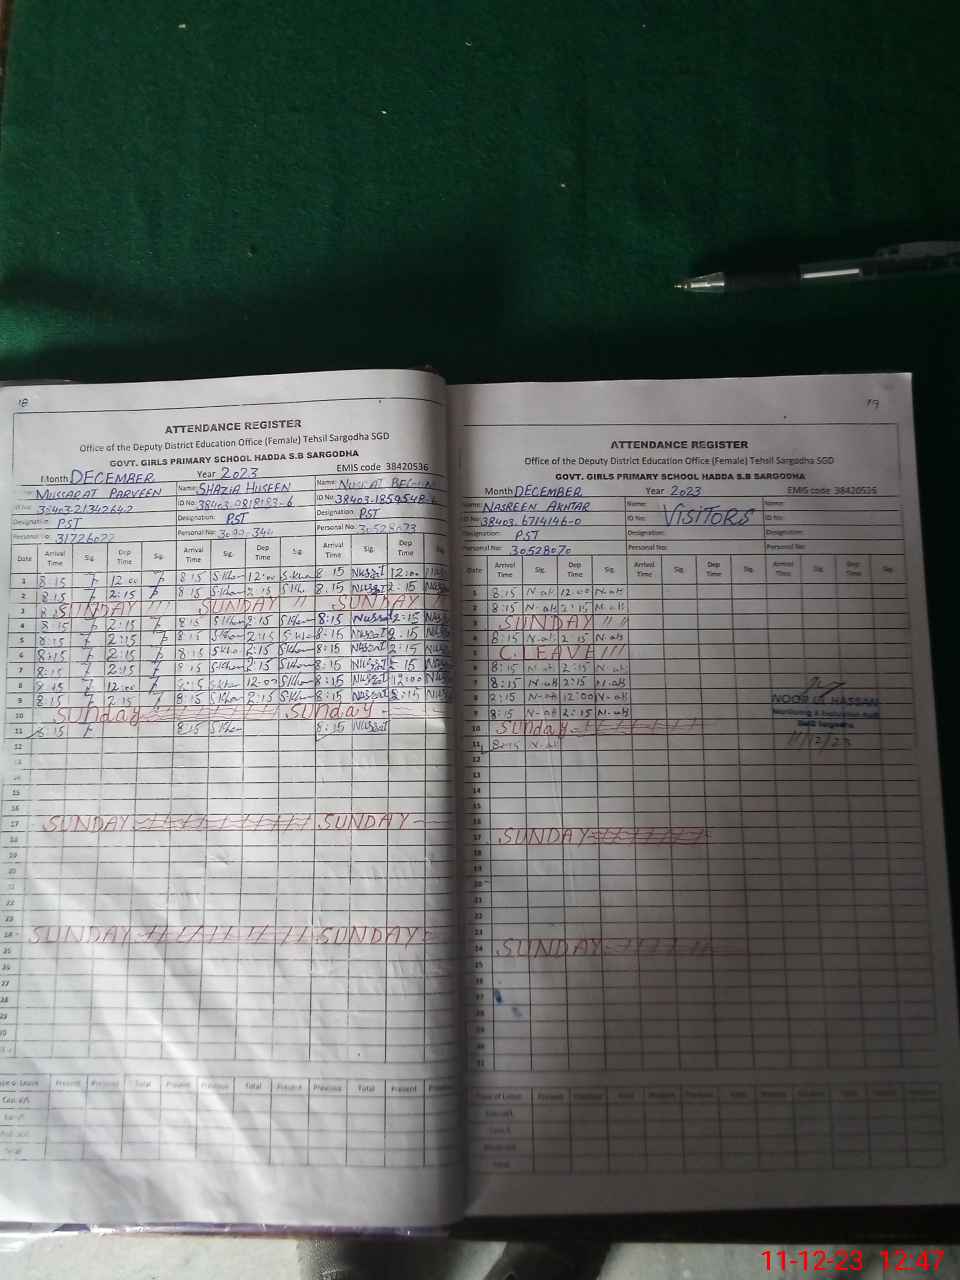 18
ATTENDANCE REGISTER
Office of the Deputy District Education Office (Female) Tehsil Sargodha SGD
GOVT. GIRLS PRIMARY SCHOOL HADDA S.B SARGODHA
Month DECEMBER Year 2023 EMIS code 38420536
MUSSARAT PARVEEN Name: SHAZIA HUSEEN Name: NUSRAT
ID No: ID No: ID No:
Designation: PST Designation: PST Designation: PST
Personal No: Personal No: Personal No: 30528073
Date Arrival Time Sig. Dep Time Sig. Arrival Time Sig. Dep Time Sig. Arrival Time Sig. Dep Time Sig.
1 8:15 12:00 8:15 S.Khan 12:00 S.Khan 8:15 Nussrat 12:00
2 8:15 2:15 8:15 S.Khan 2:15 S.Khan 8:15 Nussrat 2:15
3 SUNDAY SUNDAY SUNDAY
4 8:15 2:15 8:15 S.Khan 2:15 S.Khan 8:15 Nussrat 2:15
5 8:15 2:15 8:15 S.Khan 2:15 S.Khan 8:15 Nussrat 2:15
6 8:15 2:15 8:15 S.Khan 2:15 S.Khan 8:15 Nussrat 2:15
7 8:15 2:15 8:15 S.Khan 2:15 S.Khan 8:15 Nussrat 2:15
8 8:15 12:00 8:15 S.Khan 12:00 S.Khan 8:15 Nussrat 12:00
9 8:15 2:15 8:15 S.Khan 2:15 S.Khan 8:15 Nussrat 2:15
10 Sunday Sunday
11 8:15 8:15 S.Khan 8:15 Nussrat
12
13
14
15
16
17 SUNDAY SUNDAY
18
19
20
21
22
23
24 SUNDAY SUNDAY
25
26
27
28
29
30
31
Present Previous Total Present Previous Total Present Previous Total Present
19
ATTENDANCE REGISTER
Office of the Deputy District Education Office (Female) Tehsil Sargodha SGD
GOVT. GIRLS PRIMARY SCHOOL HADDA S.B SARGODHA
Month DECEMBER Year 2023 EMIS code 38420536
Name: NASREEN AKHTAR Name: Name:
ID No: 38403-6714146-0 ID No: VISITORS ID No:
Designation: PST Designation: Designation:
Personal No: 30528070 Personal No: Personal No:
Date Arrival Time Sig. Dep Time Sig. Arrival Time Sig. Dep Time Sig. Arrival Time Sig. Dep Time Sig.
1 8:15 N-ak 12:00 N-ak
2 8:15 N-ak 2:15 N-ak
3 SUNDAY
4 8:15 N-ak 2:15 N-ak
5 C.LEAVE
6 8:15 N-ak 2:15 N-ak
7 8:15 N-ak 2:15 N-ak
8 8:15 N-ak 12:00 N-ak
9 8:15 N-ak 2:15 N-ak
NOOR UL HASSAN
Monitoring & Evaluation
Sargodha
11/12/23
10 Sunday
11 8:15 N-ak
12
13
14
15
16
17 SUNDAY
18
19
20
21
22
23
24 SUNDAY
25
26
27
28
29
30
31
Type of Leave Present Previous Total Present Previous Total
11-12-23 12:47